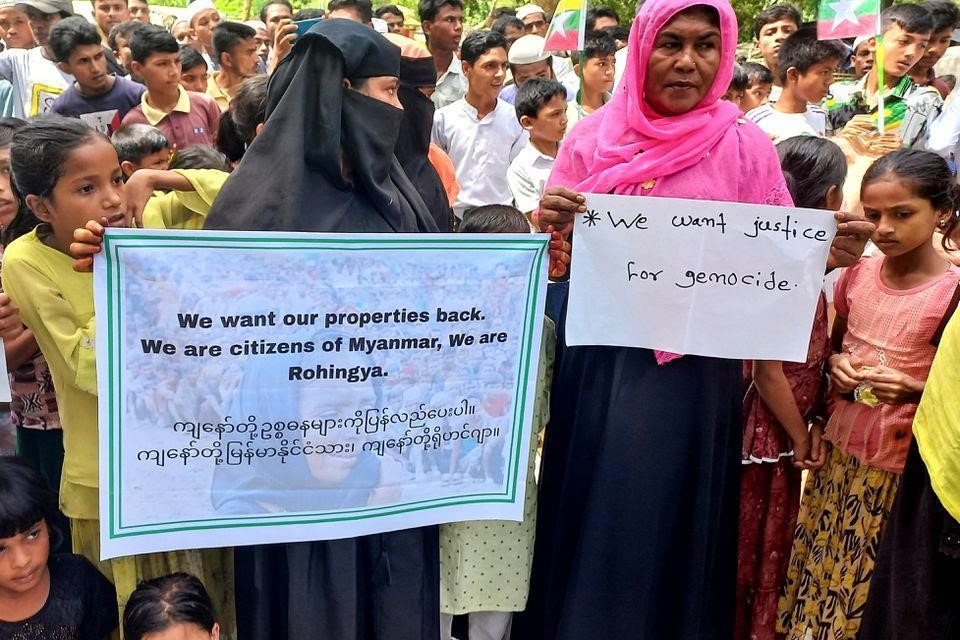 We want our properties back.
We are citizens of Myanmar, We are
Rohingya.
ကျနော်တို့ဥစ္စဓနများကိုပြန်လည်ပေးပါ။
ကျနော်တို့မြန်မာနိုင်ငံသား၊ ကျနော်တို့ရိုဟင်ဂျာ။
* We want justice
for gemocide.